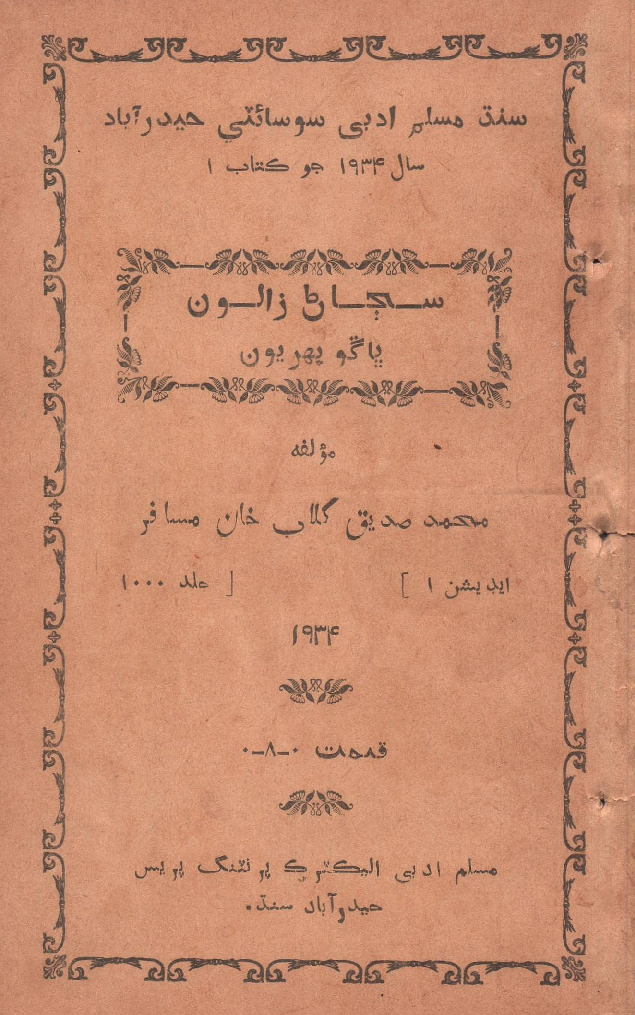 سنڌ مسلم ادبي سوسائٽي حيدرآباد
سال ۱۹۳۴ جو ڪتاب ۱
سڄاڻ زالون
ڀاڱو پهريون
مؤلفه
محمد صديق گلاب خان مسافر
ايڊيشن ۱ ] [ جلد ۱۰۰۰
۱۹۳۴
قيمت ۰-۸-۰
مسلم ادبي اليڪٽرڪ پرنٽنگ پريس
حيدرآباد سنڌ.